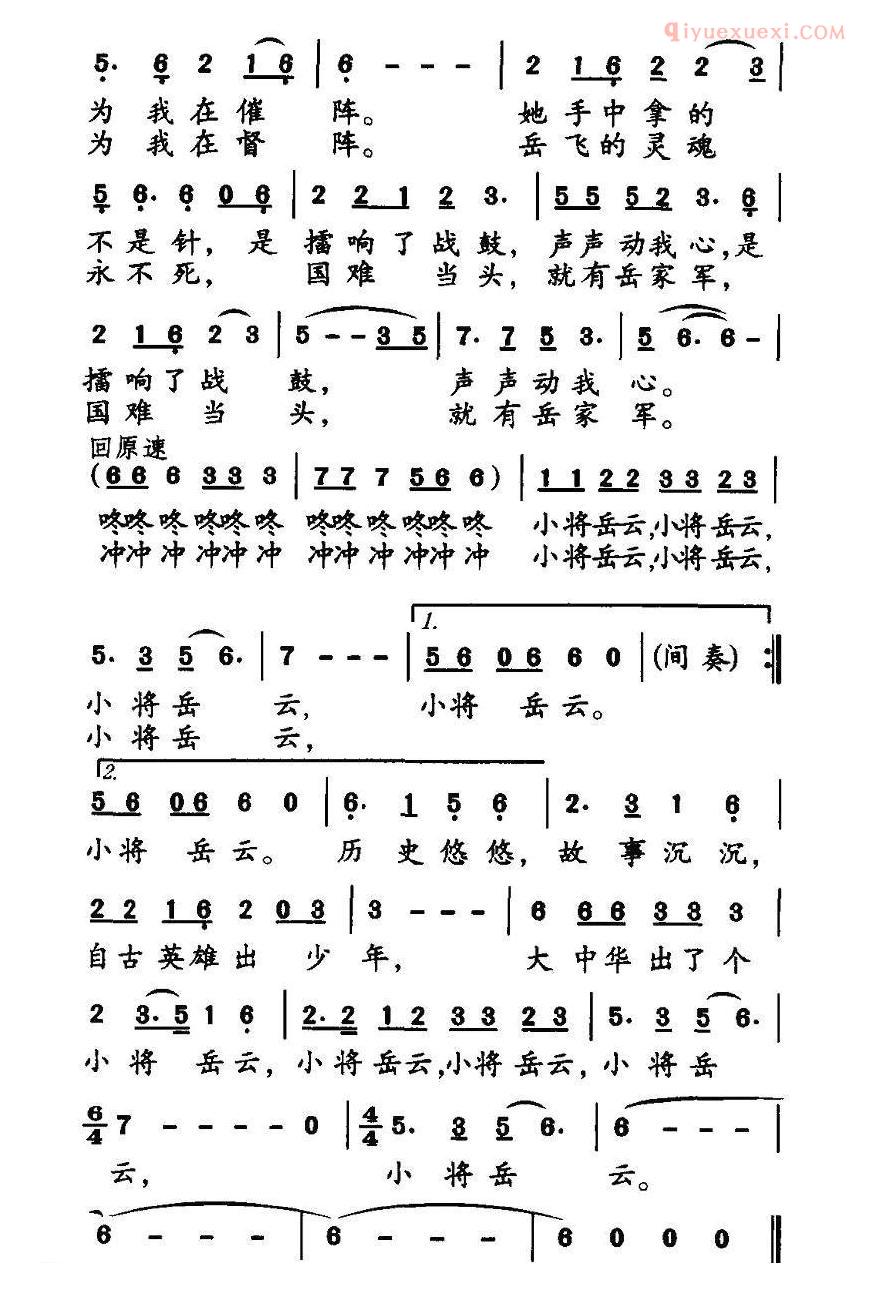 qiyuexuexi.COM
5. 6 2 1 6 | 6 - - - | 2 1 6 2 2 3 |
为 我 在 催 阵。 她 手 中 拿 的
为 我 在 督 阵。 岳 飞 的 灵 魂
5 6. 6 0 6 | 2 2 1 2 3. | 5 5 5 2 3. 6 |
不 是 针， 是 擂 响 了 战 鼓，声 声 动 我 心，是
永 不 死， 国 难 当 头，就 有 岳 家 军，
2 1 6 2 3 | 5 - - 3 5 | 7. 7 5 3. | 5 6. 6 - |
擂 响 了 战 鼓， 声 声 动 我 心。
国 难 当 头， 就 有 岳 家 军。
回原速
(6 6 6 3 3 3 | 7 7 7 5 6 6) | 1 1 2 2 3 3 2 3 |
咚咚 咚 咚咚 咚 咚咚 咚 咚咚 咚 小将岳云，小将岳云，
冲冲 冲 冲冲 冲 冲冲 冲 冲冲 冲 小将岳云，小将岳云，
1.
5. 3 5 6. | 7 - - - | 5 6 0 6 6 0 | (间奏) :||
小 将 岳 云， 小将 岳 云。
小 将 岳 云，
2.
5 6 0 6 6 0 | 6. 1 5 6 | 2. 3 1 6 |
小将 岳 云。 历 史 悠 悠，故 事 沉 沉，
2 2 1 6 2 0 3 | 3 - - - | 6 6 6 3 3 3 |
自古英雄出 少 年， 大 中华出了个
2 3. 5 1 6 | 2. 2 1 2 3 3 2 3 | 5. 3 5 6. |
小 将 岳 云，小 将岳云，小将岳云，小 将 岳
6/4 7 - - - - 0 | 4/4 5. 3 5 6. | 6 - - - |
云， 小 将 岳 云。
6 - - - | 6 - - - | 6 0 0 0 ||